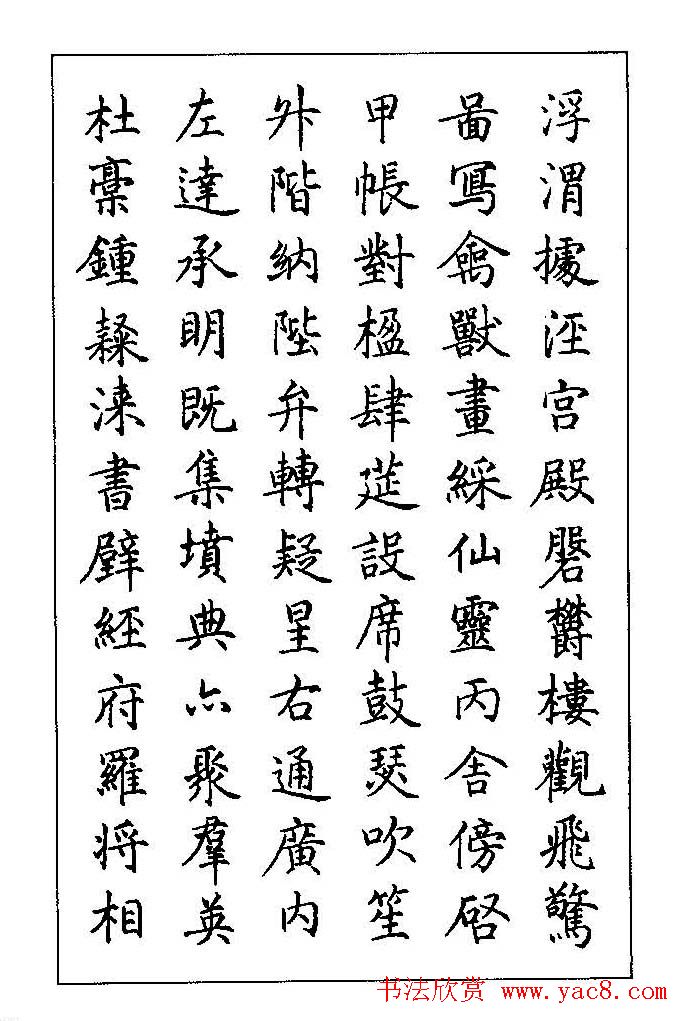 浮渭據涇宫殿磐欝樓觀飛驚
啚寫禽獸畫綵仙靈丙舍傍啓
甲帳對楹肆筵設席鼓瑟吹笙
升階納陛弁轉疑星右通廣内
左達承明既集墳典亦聚羣英
杜稾鍾隸漆書壁經府羅将相
书法欣赏 www.yac8.com